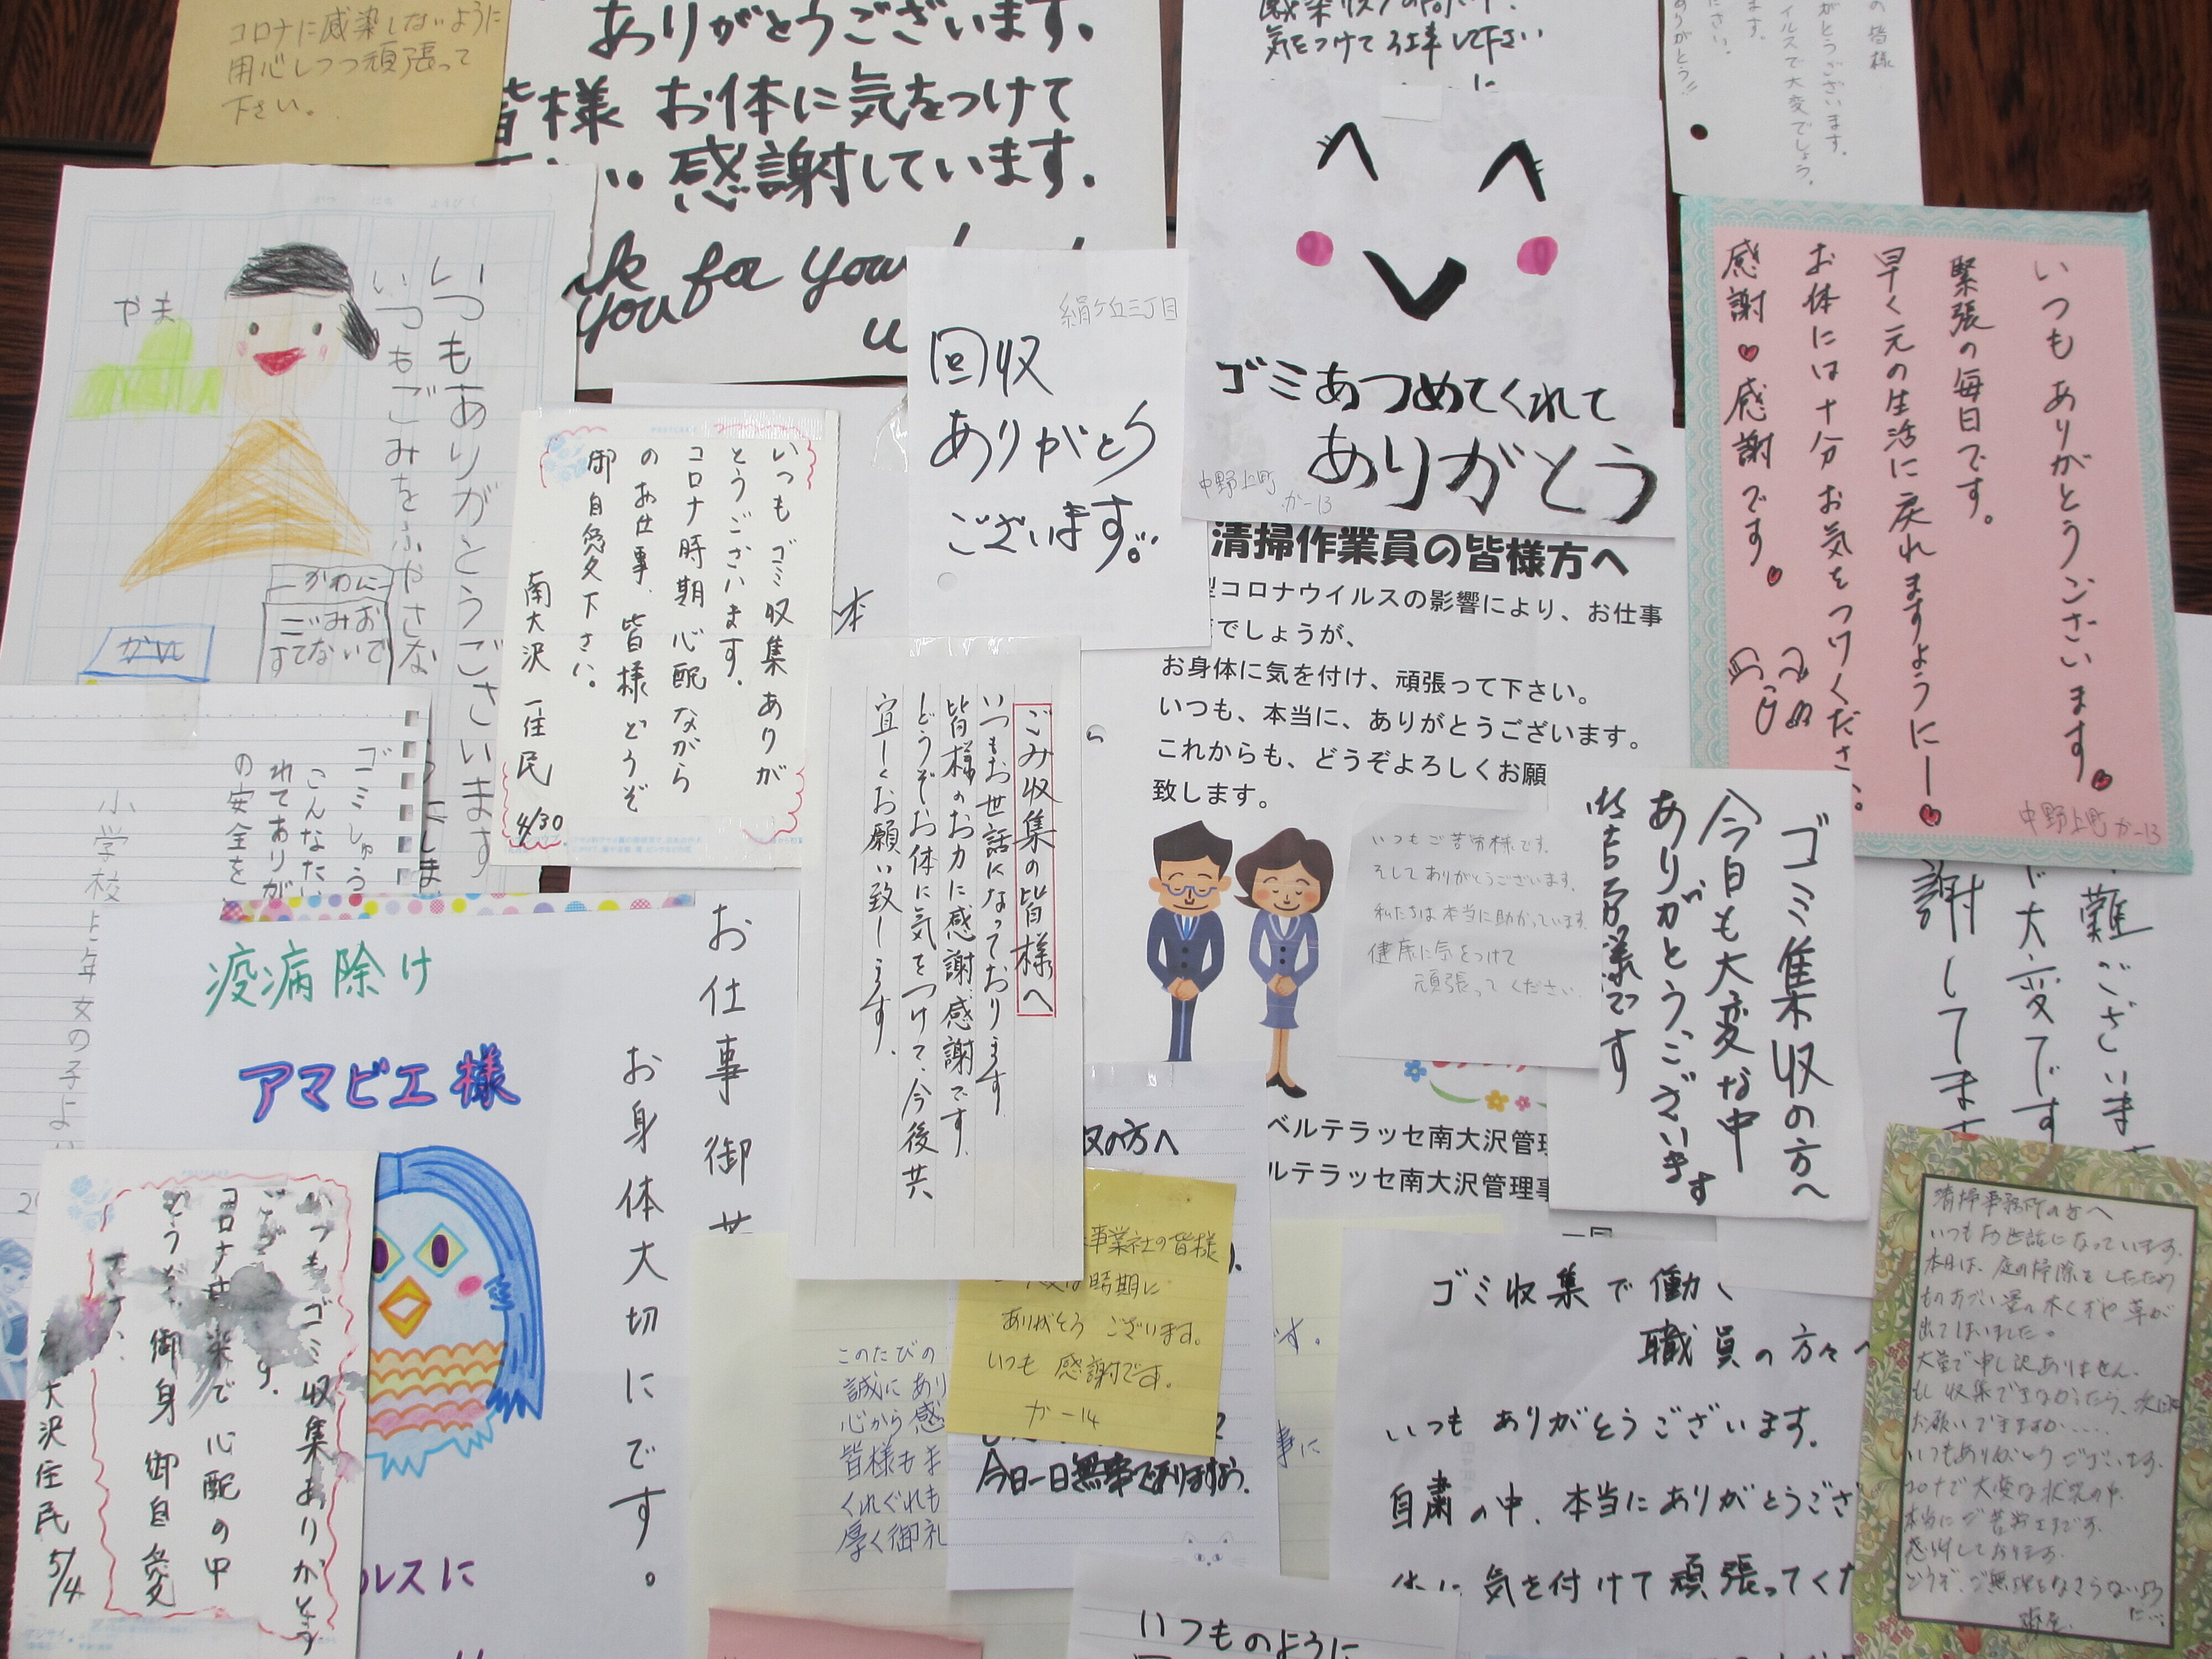 コロナに感染しないように
用心しつつ頑張って
下さい。
ありがとうございます。
皆様 お体に気をつけて
感謝しています。
you for your
気をつけてお仕事して下さい
の皆様
がとうございます。
イルスで大変でしょう。
ます。
ださい。
ありがとう!!
やま
いつもありがとうございます
いつもごみをふやさな
かわに
ごみお
すてないで
絹ヶ丘三丁目
回収
ありがとう
ございます。
ゴミあつめてくれて
ありがとう
中野上町
か-13
いつもありがとうございます。
緊張の毎日です。
早く元の生活に戻れますようにー
お体には十分お気をつけください。
感謝感謝です。
中野上町 か-13
いつもゴミ収集ありが
とうございます。
コロナ時期心配ながら
のお仕事、皆様どうぞ
御自愛下さい。
南大沢 一住民 4/30
本
清掃作業員の皆様方へ
型コロナウイルスの影響により、お仕事
でしょうが、
お身体に気を付け、頑張って下さい。
いつも、本当に、ありがとうございます。
これからも、どうぞよろしくお願
致します。
ベルテラッセ南大沢管理
ルテラッセ南大沢管理事
ごみ収集の皆様へ
いつもお世話になっております
皆様のお力に感謝感謝です
どうぞお体に気をつけて、今後共
宜しくお願い致します。
いつもご苦労様です。
そしてありがとうございます。
私たちは本当に助かっています。
健康に気をつけて
頑張ってください。
ゴミ集収の方へ
今日も大変な中
ありがとうございます
御苦労様です
難ございま
大変です
謝してます
ゴミしゅう
こんなたい
れてありが
の安全を
小学校
年 女の子より
疫病除け
アマビエ様
ルスに
お仕事御苦
お身体大切にです。
いつもゴミ収集ありがとう
ござ す。
コロナ 染で心配の中
どうぞ、御身御自愛
下さい、
大沢住民 5/4
収の方へ
事業社の皆様
時期に
ありがとうございます。
いつも感謝です。
か-14
今日一日無事でありますよう。
このたびの
誠にあり
心から感
皆様もま
くれぐれも
厚く御礼
す。
事に
ゴミ収集で働く
職員の方々へ
いつもありがとうございます。
自粛の中、本当にありがとうござ
気を付けて頑張ってくだ
いつものように
清掃事務所の方へ
いつもお世話になっています。
本日は、庭の掃除をしたため
ものすごい量の木くずや草が
出てしまいました。
大量で申し訳ありません。
もし収集できなかったら、次回に
お願いできますか……
いつもありがとうございます。
コロナで大変な状況の中、
本当にご苦労さまです。
感謝しております。
どうぞ、ご無理をなさらないように…